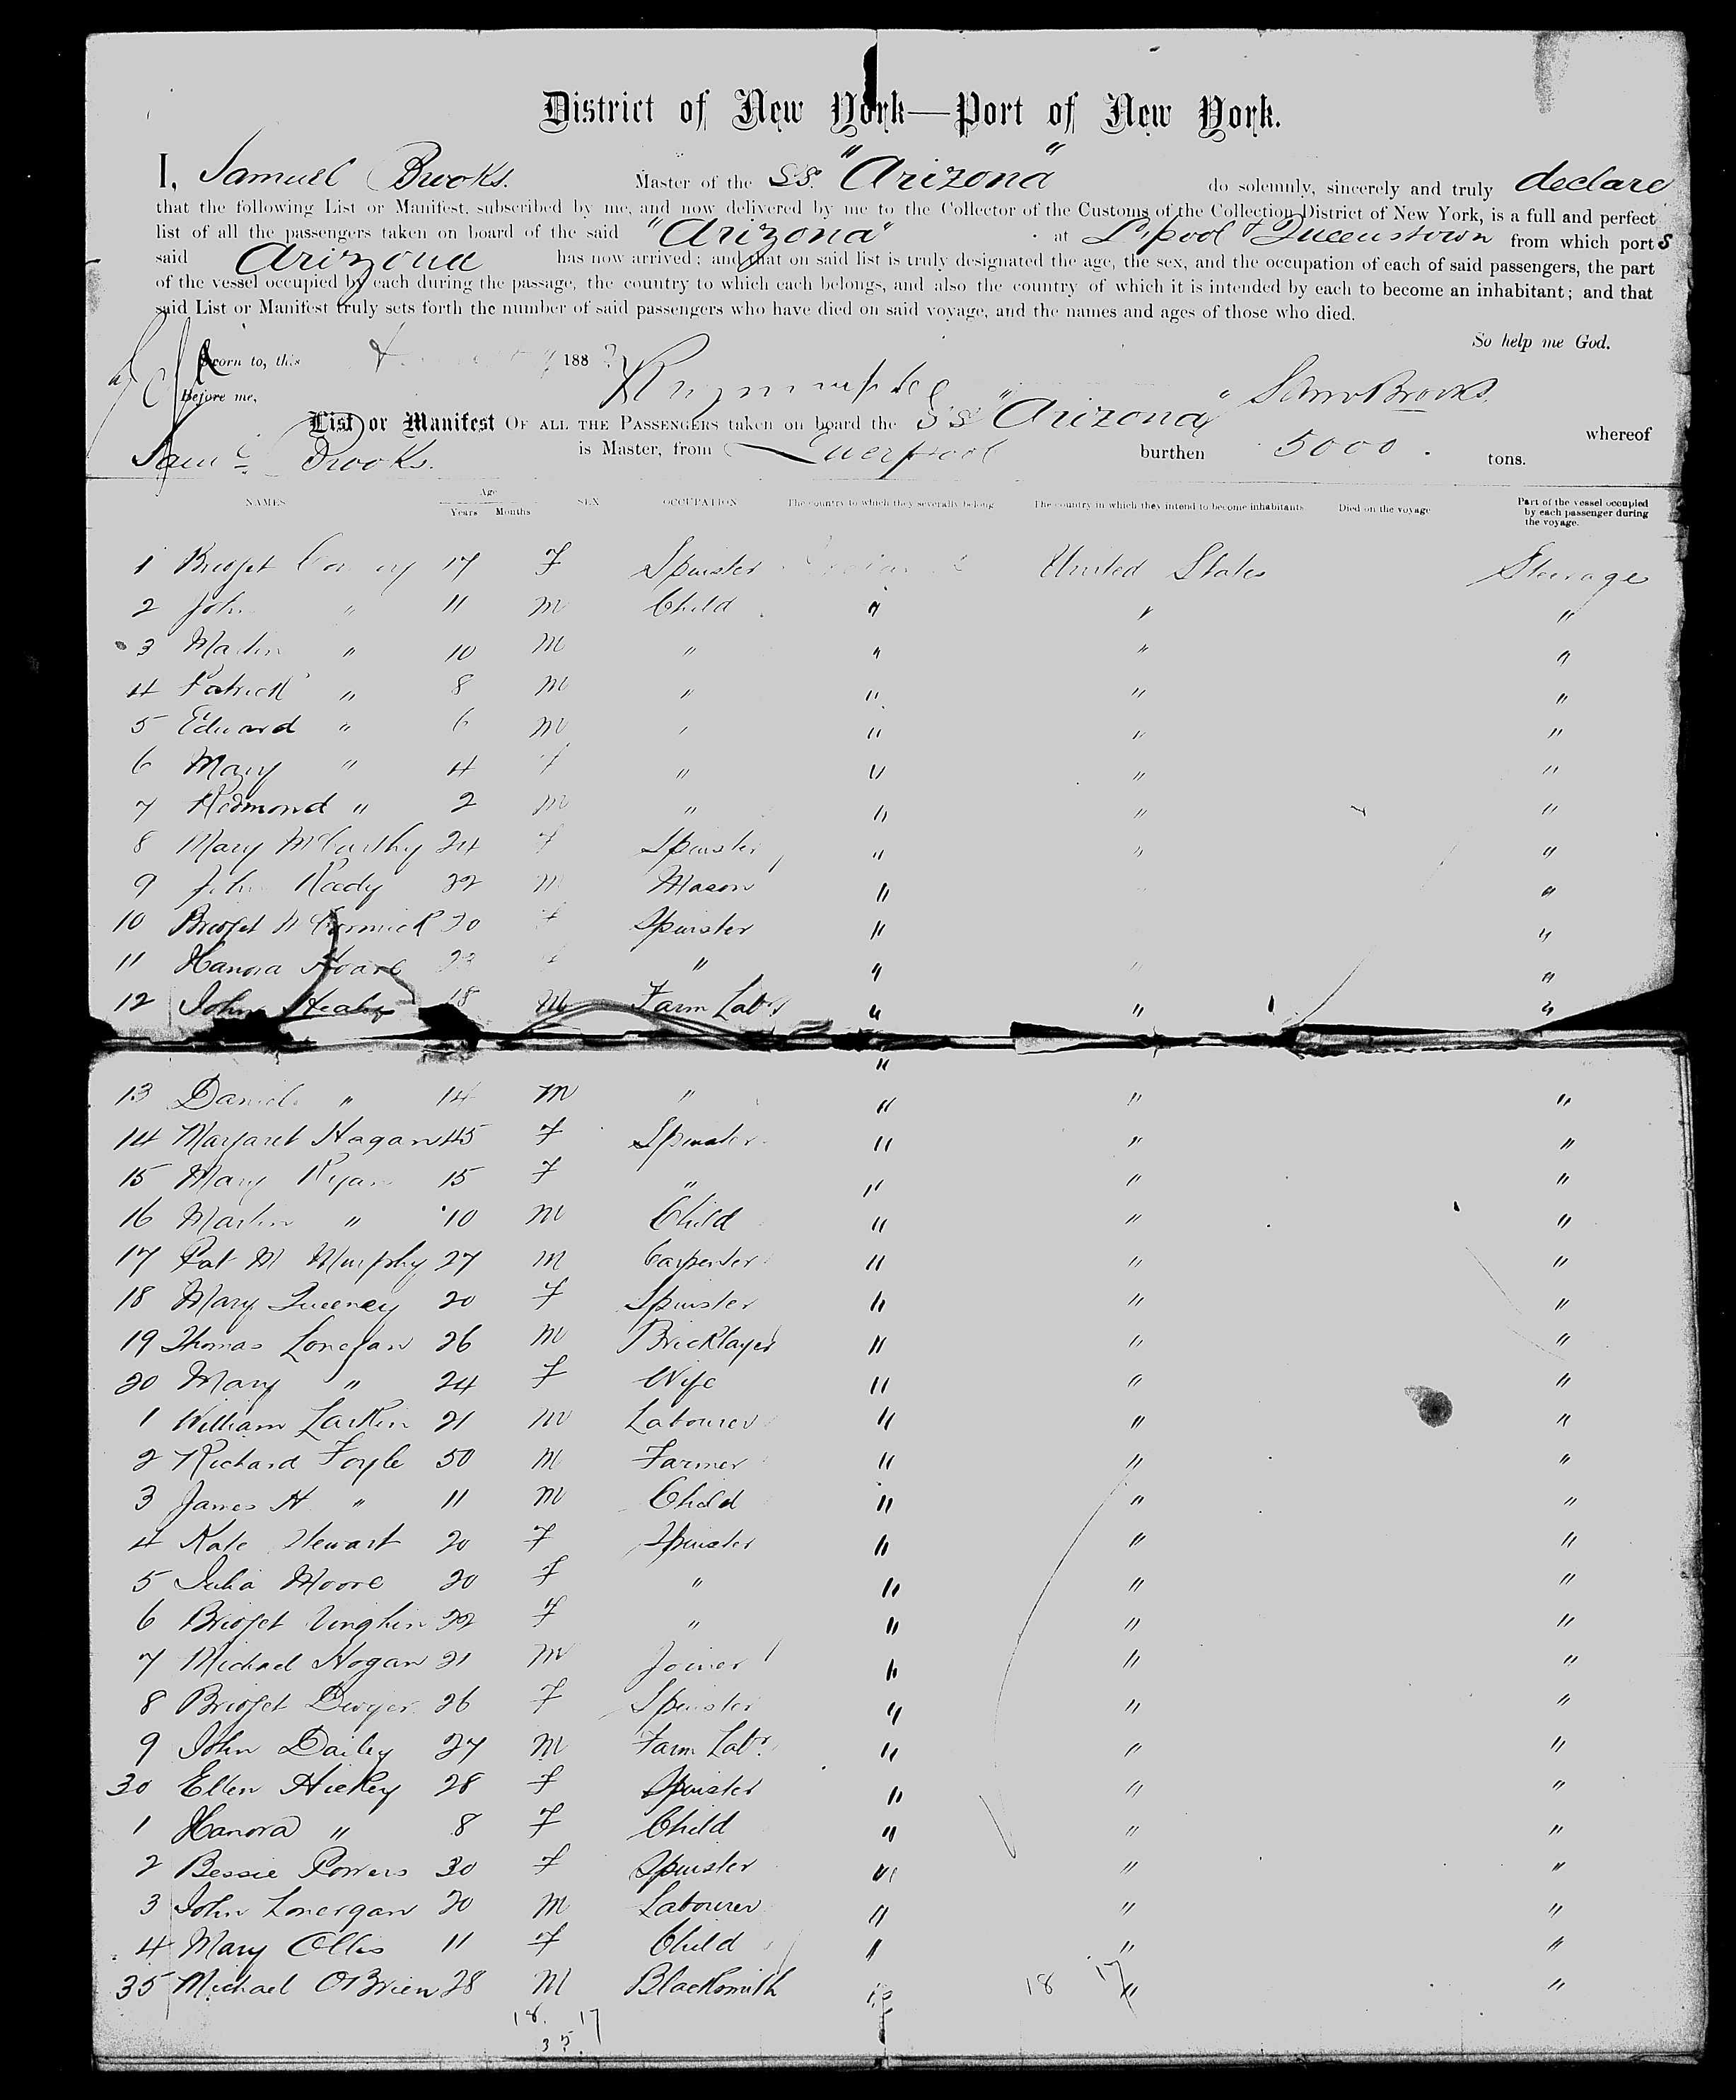 District of New York—Port of New York.
I, Samuel Brooks. Master of the S.S. "Arizona" do solemnly, sincerely and truly declare
that the following List or Manifest, subscribed by me, and now delivered by me to the Collector of the Customs of the Collection District of New York, is a full and perfect
list of all the passengers taken on board of the said "Arizona" at L'pool & Queenstown from which ports
said Arizona has now arrived; and that on said list is truly designated the age, the sex, and the occupation of each of said passengers, the part
of the vessel occupied by each during the passage, the country to which each belongs, and also the country of which it is intended by each to become an inhabitant; and that
said List or Manifest truly sets forth the number of said passengers who have died on said voyage, and the names and ages of those who died.
So help me God.
Sworn to, this 188
Before me, Saml Brooks
List or Manifest OF ALL THE PASSENGERS taken on board the SS "Arizona" whereof
Saml Brooks. is Master, from Liverpool burthen 5000 . tons.
NAMES Age Years Months SEX OCCUPATION The country to which they severally belong The country in which they intend to become inhabitants Died on the voyage Part of the vessel occupied by each passenger during the voyage.
1 Bridget 17 F Spinster United States Steerage
2 John " 11 M Child " " "
3 Martin " 10 M " " " "
4 Patrick " 8 M " " " "
5 Edward " 6 M " " " "
6 Mary " 4 F " " " "
7 Redmond " 2 M " " " "
8 Mary McCarthy 24 F Spinster " " "
9 John Ready 32 M Mason " "
10 Bridget McCormick 20 F Spinster " "
11 Hanora Hoare F " " " "
12 John Healy 18 M Farm Labr " " "
13 Daniel " 14 M " " " "
14 Margaret Hagan 45 F Spinster " " "
15 Mary Ryan 15 F " " " "
16 Martin " 10 M Child " " "
17 Pat M Murphy 27 M Carpenter " " "
18 Mary Sweeney 20 F Spinster " " "
19 Thomas Lonegan 26 M Bricklayer " " "
20 Mary " 24 F Wife " " "
1 William Larkin 21 M Labourer " " "
2 Richard Foyle 50 M Farmer " " "
3 James H " 11 M Child " " "
4 Kate Stewart 20 F Spinster " " "
5 Julia Moore 20 F " " " "
6 Bridget 22 F " " " "
7 Michael Hogan 21 M Joiner " " "
8 Bridget Dwyer 26 F Spinster " " "
9 John Dailey 27 M Farm Labr " " "
30 Ellen Hickey 28 F Spinster " " "
1 Hanora " 8 F Child " " "
2 Bessie Powers 30 F Spinster " " "
3 John Lonergan 20 M Labourer " " "
4 Mary Ollis 11 F Child " " "
35 Michael OBrien 28 M Blacksmith " 18 17 " "
18. 17
35.